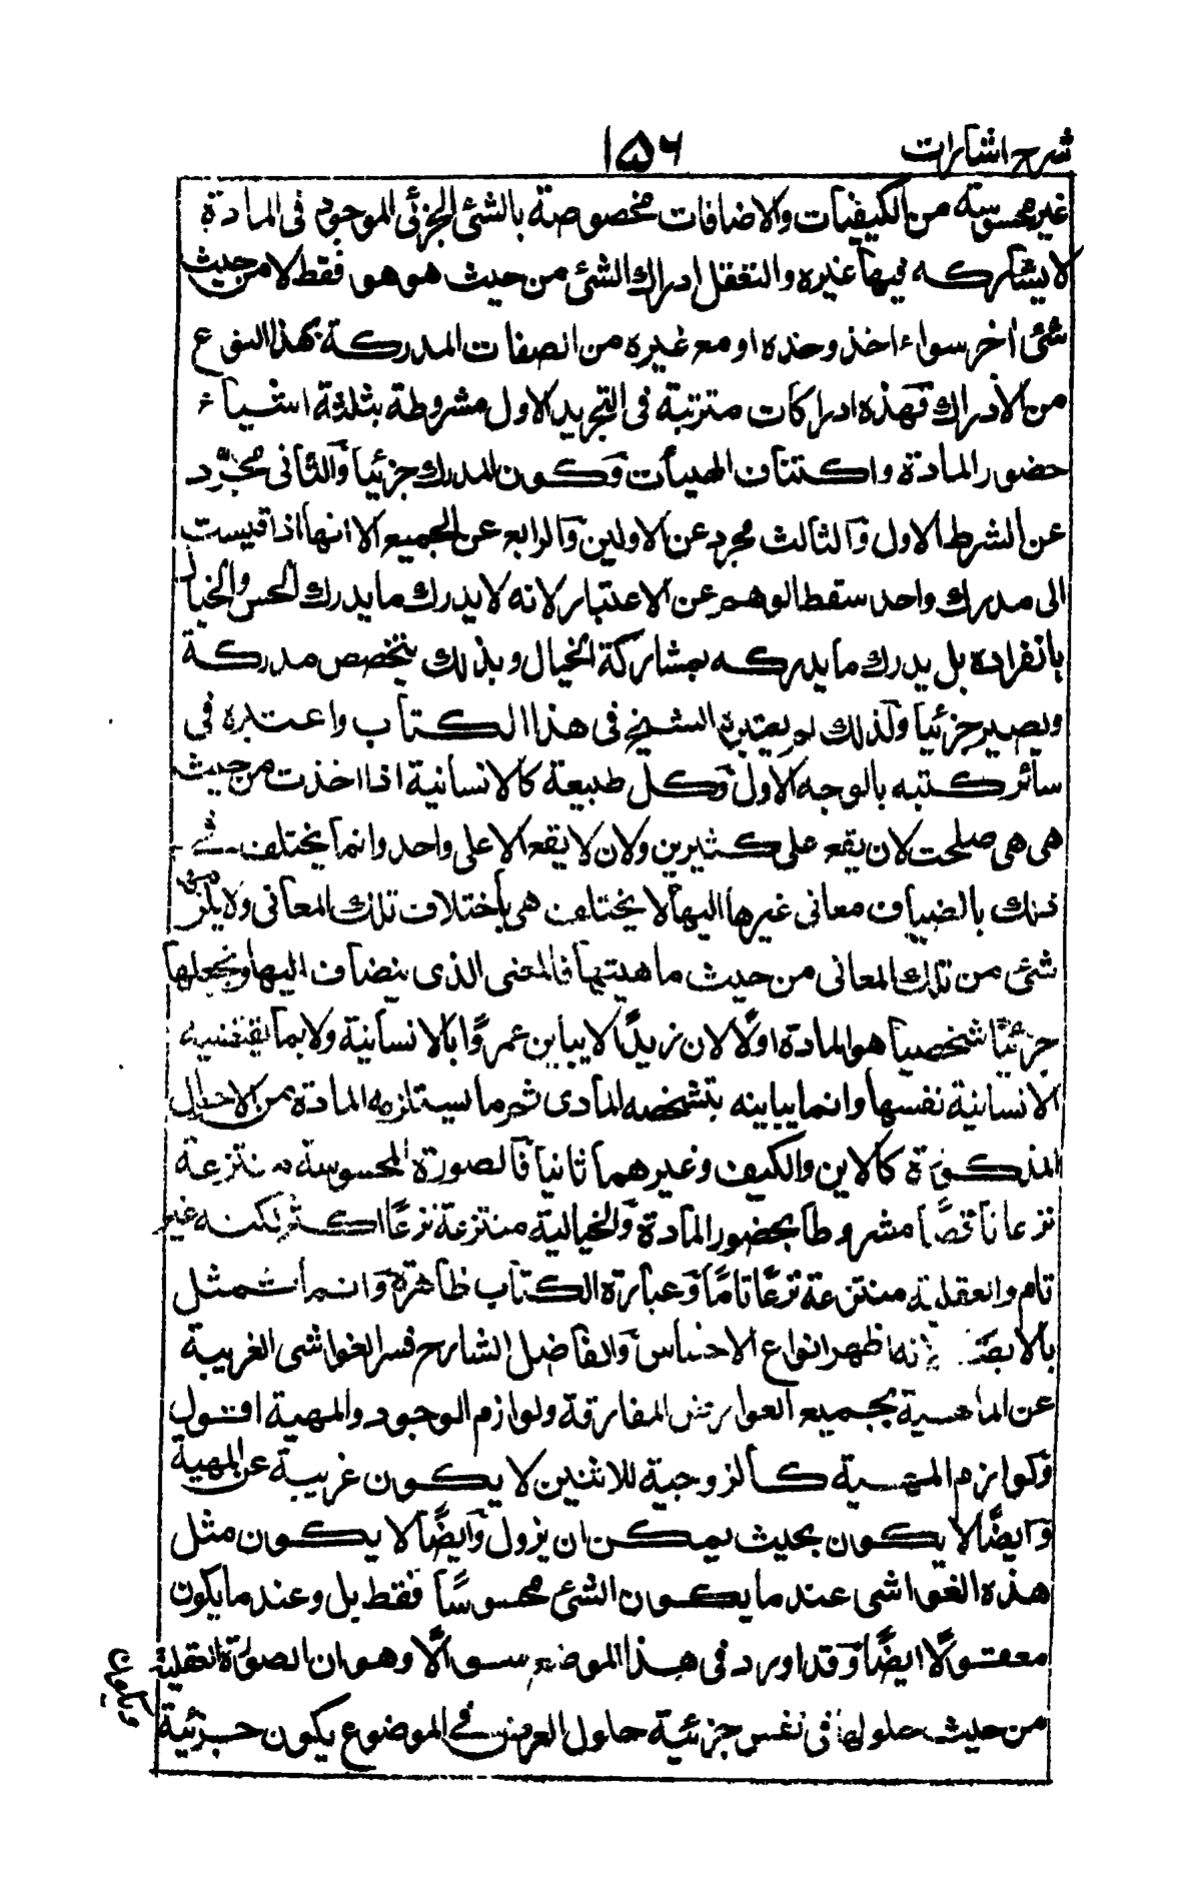 شرح اشارات
١٥٦
غير محسوسة من الكيفيات والاضافات مخصوصة بالشئ الجزئى الموجود فى المادة
لا يشاركه فيها غيره والتعقل ادراك الشئ من حيث هو هو فقط لا من حيث
شئ اخر سواء اخذ وحده او مع غيره من الصفات المدركة بهذا النوع
من الادراك فهذه ادراكات مترتبة فى التجريد الاول مشروطة بثلثة اشياء
حضور المادة واكتناف الهيآت وكون المدرك جزئيا والثانى مجرد
عن الشرط الاول والثالث مجرد عن الاولين والرابع عن الجميع الا انها اذا قيست
الى مدرك واحد سقط الوهم عن الاعتبار لانه لا يدرك ما يدرك الحس والخيال
بانفراده بل يدرك ما يدركه بمشاركة الخيال وبذلك يتخصص مدركة
ويصير جزئيا ولذلك لم يعتبره الشيخ فى هذا الكتاب واعتبره فى
سائر كتبه بالوجه الاول وكل طبيعة كالانسانية اذا اخذت من حيث
هى هى صلحت لان يقع على كثيرين ولان لا يقع الا على واحد وانما يختلف فى
ذلك بالضياف معانى غيرها اليها لا يختلف هى باختلاف تلك المعانى ولا يلزمها
شئ من تلك المعانى من حيث ماهيتها فالمعنى الذى ينضاف اليها ويجعلها
جزئيا شخصيا هو المادة اولا لان زيدًا لا يباين عمروًا بالانسانية ولا بما يقتضيه
الانسانية نفسها وانما يباينه بتشخصه المادى ثم ما يستلزمه المادة من الاحوال
المذكورة كالاين والكيف وغيرهما ثانيا فالصورة المحسوسة منتزعة
نزعا ناقصًا مشروطا بحضور المادة والخيالية منتزعة نزعًا اكثر لكنه غير
تام والعقلية منتزعة نزعًا تامًا وعبارة الكتاب ظاهرة وانما تمثل
بالابصار لانه اظهر انواع الاحساس والفاضل الشارح فسر الغواشى الغريبة
عن الماهية بجميع العوارض المفارقة ولوازم الوجود والمهية اقول
ولوازم المهية كالزوجية للاثنين لا يكون غريبة عن المهية
وايضًا لا يكون بحيث يمكن ان يزول وايضًا لا يكون مثل
هذه الغواشى عند ما يكون الشئ محسوسًا فقط بل وعند ما يكون
معقولًا ايضًا وقد اورد فى هذا الموضع سوالًا وهو ان الصورة العقلية
من حيث حلولها فى نفس جزئية حلول العرض فى الموضوع يكون جزئية